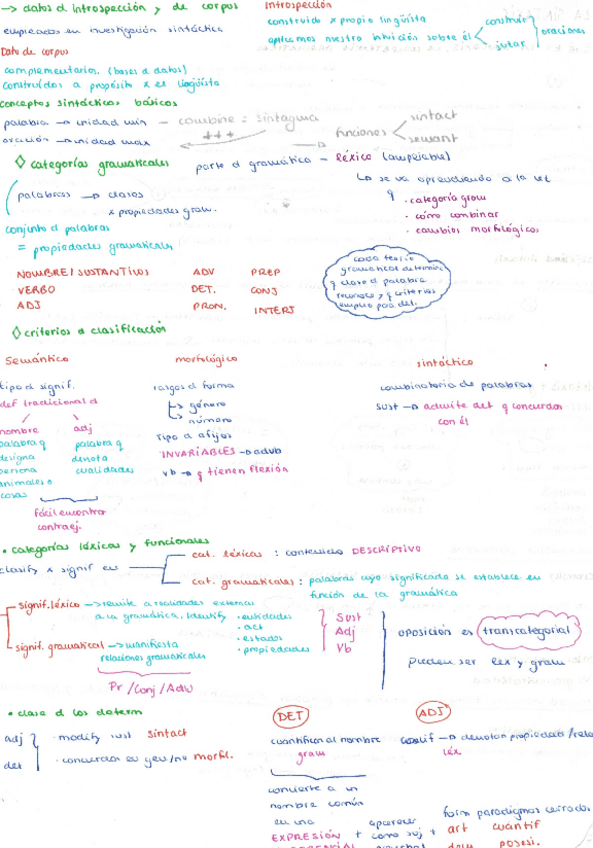 → datos d introspección y de corpus
empleados en investigación sintáctica
Introspección
construido x propio lingüista
aplicamos nuestra intuición sobre él
construir
juzgar
oraciones
Dato de corpus
complementarios. (bases d datos)
construidos a propósito x es lingüista
conceptos sintácticos básicos
palabra → unidad min — combine = sintagma
oración → unidad max
+++
funciones
sintact
semant
◊ categorías gramaticales
parte d gramática - léxico (ampliable)
↳ se va aprendiendo a la vez
q
· categoría gram
· cómo combinar
· cambios morfológicos
palabras → clases
x propiedades gram.
conjunto d palabras
= propiedades gramaticales
NOMBRE / SUSTANTIVOS
VERBO
ADJ
ADV
DET.
PRON.
PREP
CONJ
INTERJ
cada teoría
gramatical determina
q clase d palabra
reconoce y q criterios
emplea para det.
◊ criterios d clasificación
semántico
tipo d signif.
def tradicional d
nombre
palabra q
designa
persona
animales o
cosas
adj
palabra q
denota
cualidades
fácil encontrar
contraej.
morfológico
rasgos d forma
↳ género
↳ número
tipo d afijos
INVARIABLES → advb
vb → q tienen flexión
sintáctico
combinatoria de palabras
sust → admite det q concuerdan
con él
• categorías léxicas y funcionales
classify x signif en
cat. léxicas : contenido DESCRIPTIVO
cat. gramaticales : palabras cuyo significado se establece en
función de la gramática
signif. léxico → remite a realidades externas
a la gramática. Identify
· entidades
· act
· estados
· propiedades
Sust
Adj
Vb
signif. gramatical → manifiesta
relaciones gramaticales
Pr / Conj / Adv
oposición es transcategorial
pueden ser lex y gram
• clase d los determ
adj
det
· modify sust sintact
· concuerdan en gen/nu morfl.
DET
cuantifican al nombre
gram
convierte a un
nombre común
en una
EXPRESIÓN
+
aparecer
como suj
+
ADJ
→ denotan propiedades
léx
form paradigmas cerrados
art
cuantif
posesi.